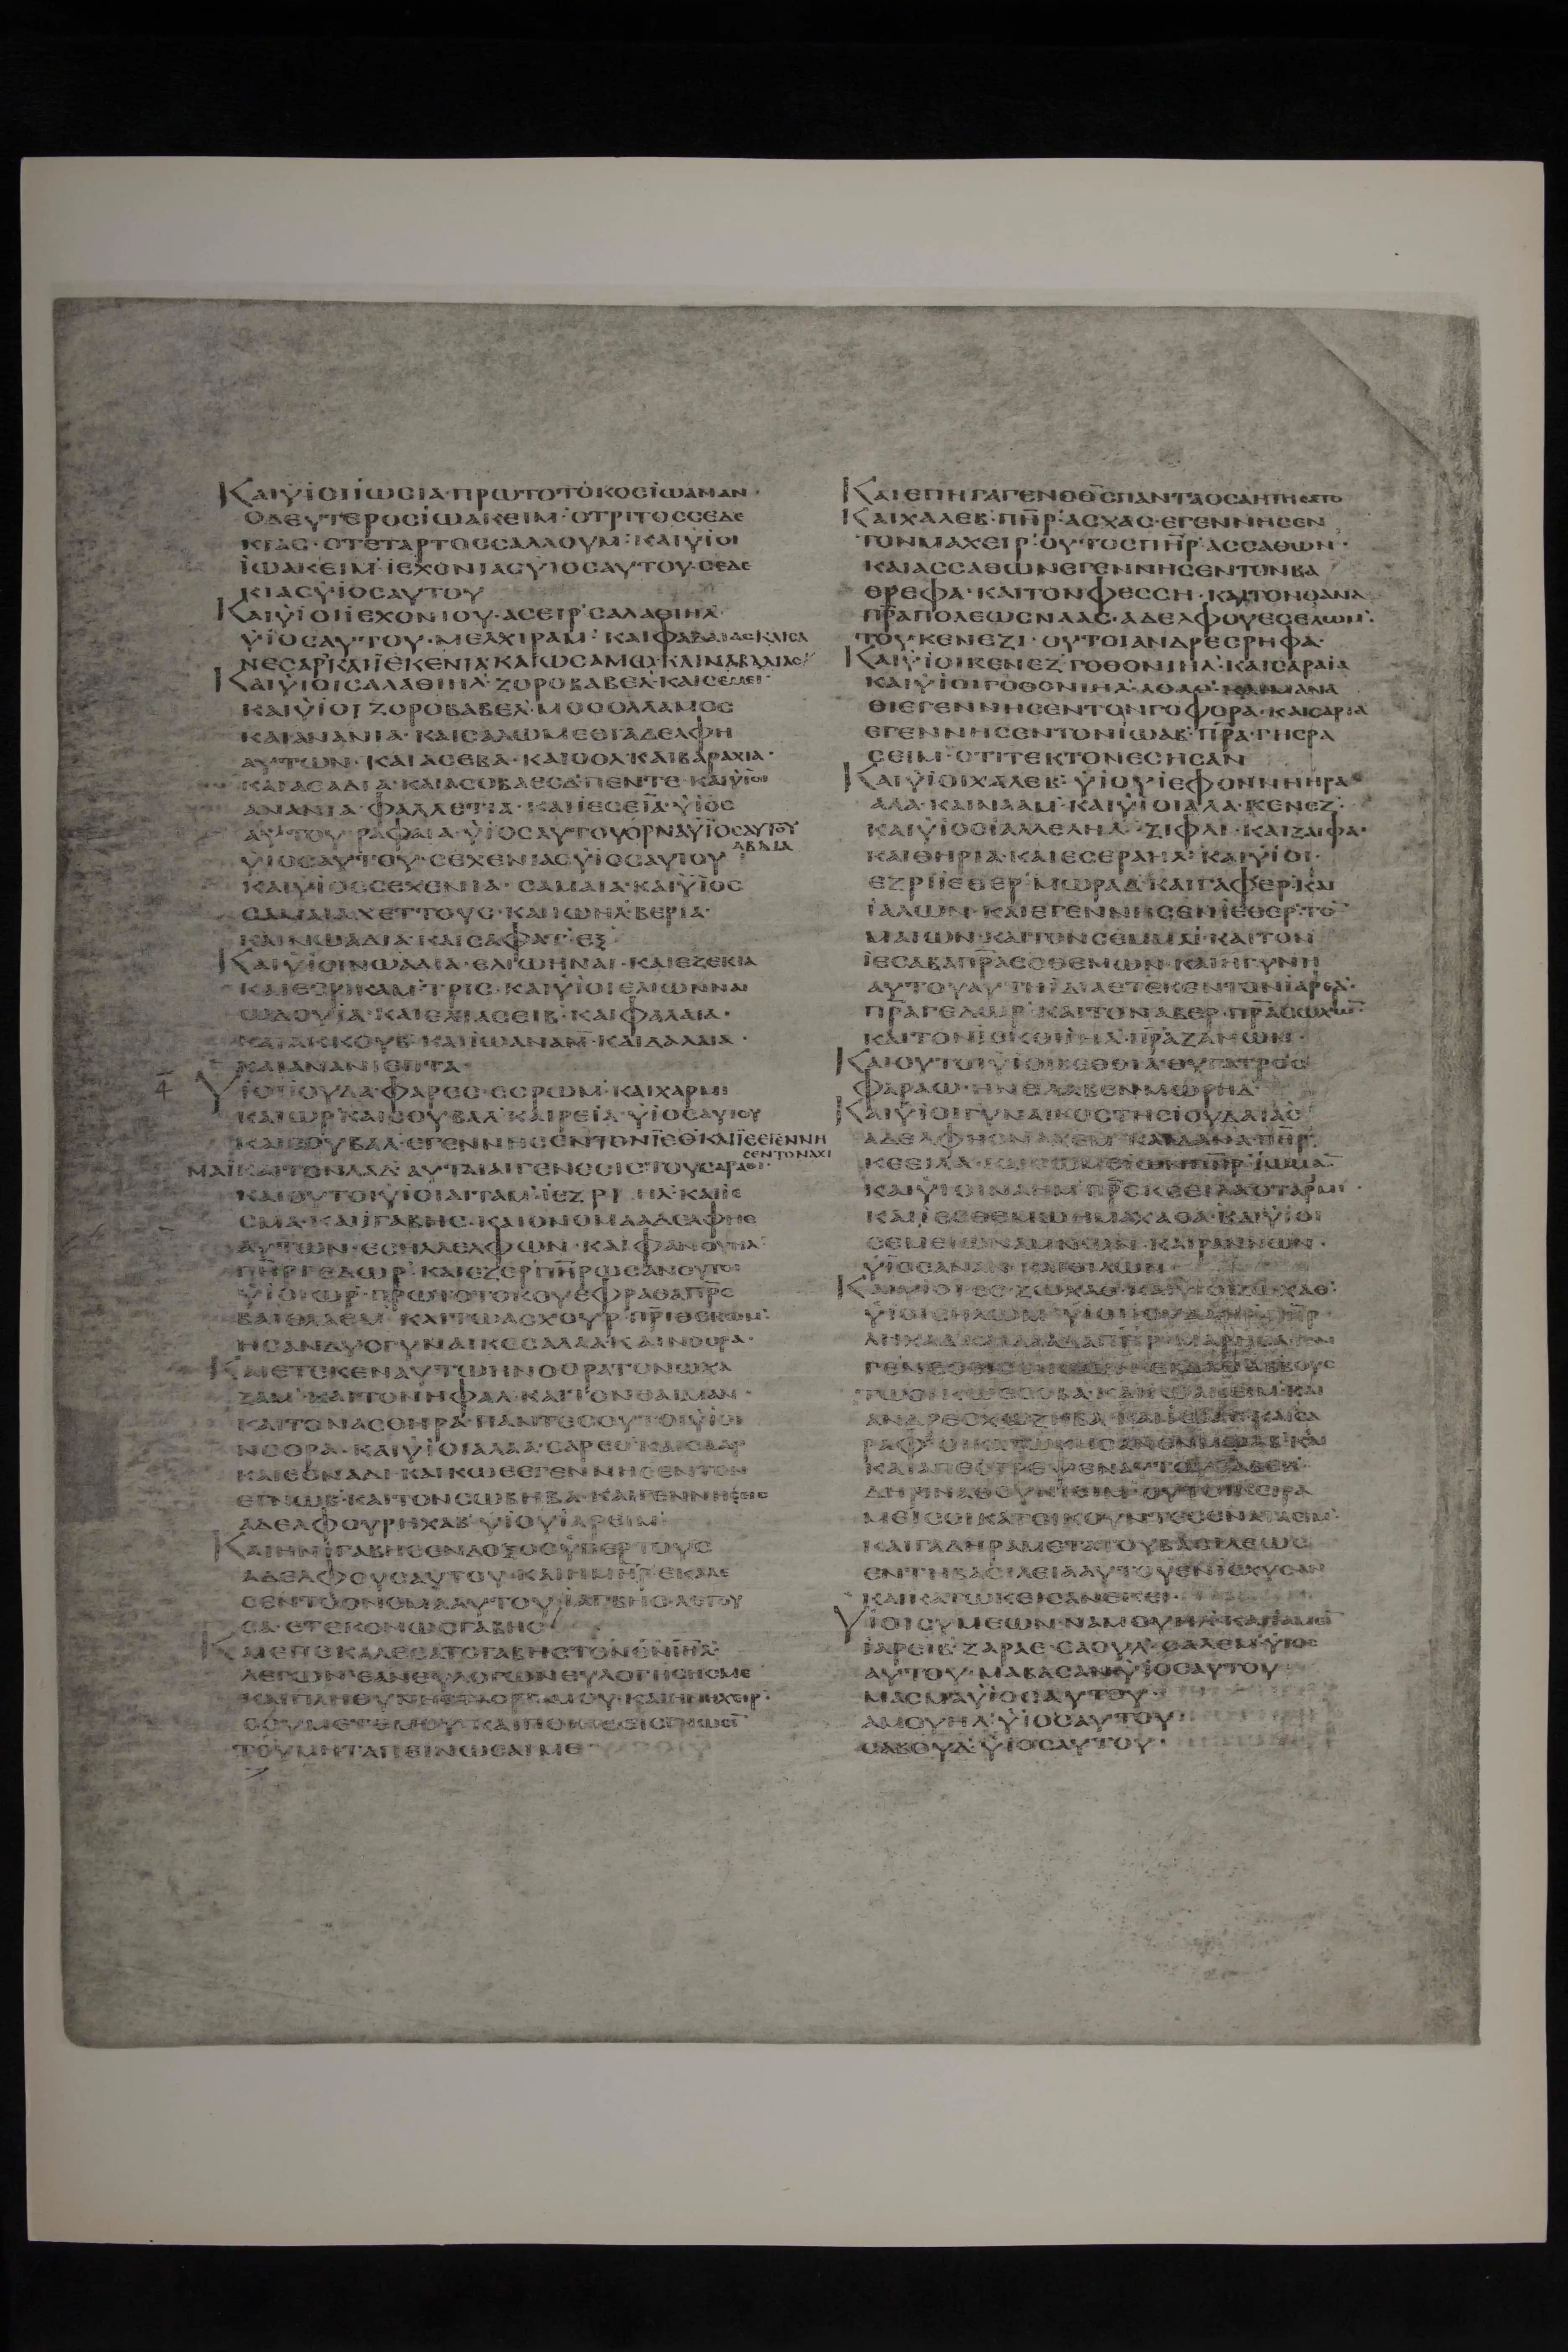 ΚΑΙΥΪΟΙΪΩCΙΑ·ΠΡΩΤΟΤΟΚΟCΪΩΑΝΑΝ·
ΟΔΕΥΤΕΡΟCΪΩΑΚΕΙΜ·ΟΤΡΙΤΟCCΕΔΕ
ΚΙΑC·ΟΤΕΤΑΡΤΟCCΑΛΛΟΥΜ·ΚΑΙΥΪΟΙ
ΪΩΑΚΕΙΜ·ΪΕΧΟΝΙΑCΥΪΟCΑΥΤΟΥ·CΕΔΕ
ΚΙΑCΥΪΟCΑΥΤΟΥ
ΚΑΙΥΪΟΙΪΕΧΟΝΙΟΥ·ΑCΕΙΡ·CΑΛΑΘΙΗΛ·
ΥΪΟCΑΥΤΟΥ·ΜΕΛΧΙΡΑΜ·ΚΑΙΦΑΛΔΑΙΑCΚΑΙCΑ
ΝΕCΑΡ·ΚΑΙΪΕΚΕΝΙΑ·ΚΑΙΩCΑΜΩ·ΚΑΙΝΑΒΑΔΙΑC
ΚΑΙΥΪΟΙCΑΛΑΘΙΗΛ·ΖΟΡΟΒΑΒΕΛ·ΚΑΙCΕΜΕΙ·
ΚΑΙΥΪΟΙΖΟΡΟΒΑΒΕΛ·ΜΟCΟΛΛΑΜΟC
ΚΑΙΑΝΑΝΙΑ·ΚΑΙCΑΛΩΜΕΘΙΑΔΕΛΦΗ
ΑΥΤΩΝ·ΚΑΙΑCΕΒΑ·ΚΑΙΟΟΛ·ΚΑΙΒΑΡΑΧΙΑ·
ΚΑΙΑCΑΔΙΑ·ΚΑΙΑCΟΒΑΕCΔ·ΠΕΝΤΕ·ΚΑΙΥΪΟΙ
ΑΝΑΝΙΑ·ΦΑΛΛΕΤΙΑ·ΚΑΙΪΕCΕΙΑ·ΥΪΟC
ΑΥΤΟΥ·ΡΑΦΑΙΑ·ΥΪΟCΑΥΤΟΥΟΡΝΑΥΪΟCΑΥΤΟΥ
ΑΒΔΙΑ
ΥΪΟCΑΥΤΟΥ·CΕΧΕΝΙΑCΥΪΟCΑΥΤΟΥ
ΚΑΙΥΪΟCCΕΧΕΝΙΑ·CΑΜΑΙΑ·ΚΑΙΥΪΟC
CΑΜΑΙΑ·ΧΕΤΤΟΥC·ΚΑΙΙΩΗΛ·ΒΕΡΙΑ·
ΚΑΙΝΩΑΔΙΑ·ΚΑΙCΑΦΑΤ·ΕΞ·
ΚΑΙΥΪΟΙΝΩΑΔΙΑ·ΕΛΙΩΗΝΑΙ·ΚΑΙΕΖΕΚΙΑ
ΚΑΙΕCΡΙΚΑΜ·ΤΡΙC·ΚΑΙΥΪΟΙΕΛΙΩΝΝΑΙ
ΩΔΟΥΪΑ·ΚΑΙΕΛΙΑCΕΙΒ·ΚΑΙΦΑΛΑΙΑ·
ΚΑΙΑΚΚΟΥΒ·ΚΑΙΪΩΑΝΑΜ·ΚΑΙΔΑΛΑΙΑ·
ΚΑΙΑΝΑΝΙΕΠΤΑ·
ΥΪΟΙΪΟΥΔΑ·ΦΑΡΕC·ΕCΡΩΜ·ΚΑΙΧΑΡΜΙ
ΚΑΙΩΡ·ΚΑΙCΟΥΒΑΛ·ΚΑΙΡΕΙΑ·ΥΪΟCΑΥΤΟΥ
ΚΑΙCΟΥΒΑΛ·ΕΓΕΝΝΗCΕΝΤΟΝΪΕΘ·ΚΑΙΪΕΘΕΓΕΝΝΗ
CΕΝΤΟΝΑΧΙ
ΜΑΪΚΑΙΤΟΝΛΑΔ·ΑΥΤΑΙΑΙΓΕΝΕCΙCΤΟΥCΑΡΑΘΙ·
ΚΑΙΟΥΤΟΙΥΪΟΙΑΙΤΑΜ·ΪΕΖΡΙΗΛ·ΚΑΙΪΕ
CΜΑ·ΚΑΙΪΓΑΒΗC·ΚΑΙΟΝΟΜΑΑΔΕΛΦΗC
ΑΥΤΩΝ·ΕCΗΛΛΕΛΦΩΝ·ΚΑΙΦΑΝΟΥΗΛ·
ΠΗΡΓΕΔΩΡ·ΚΑΙΕΖΕΡ·ΠΗΡΩCΑΝΟΥΤΟΙ
ΥΪΟΙΩΡ·ΠΡΩΤΟΤΟΚΟΥΕΦΡΑΘΑΠΡC
ΒΑΙΘΛΑΕΜ·ΚΑΙΤΩΑCΧΟΥΡ·ΠΡΙΘΕΚΩΕ·
ΗCΑΝΔΥΟΓΥΝΑΙΚΕCΑΛΑΑ·ΚΑΙΝΟΟΡΑ·
ΚΑΙΕΤΕΚΕΝΑΥΤΩΗΝΟΟΡΑΤΟΝΩΧΑ
ΖΑΜ·ΚΑΙΤΟΝΗΦΑΛ·ΚΑΙΤΟΝΘΑΙΜΑΝ·
ΚΑΙΤΟΝΑCΘΗΡΑ·ΠΑΝΤΕCΟΥΤΟΙΥΪΟΙ
ΝΟΟΡΑ·ΚΑΙΥΪΟΙΑΛΑΑ·CΑΡΕΘ·ΚΑΙCΑΑΡ
ΚΑΙΕΘΝΑΔΙ·ΚΑΙΚΩΕΕΓΕΝΝΗCΕΝΤΟΝ
ΕΓΝΩΒ·ΚΑΙΤΟΝCΩΒΗΒΑ·ΚΑΙΓΕΝΝΗCΕΙC
ΑΔΕΛΦΟΥΡΗΧΑΒ·ΥΪΟΥΪΑΡΕΙΜ·
ΚΑΙΗΝΪΓΑΒΗCΕΝΔΟΞΟCΥΠΕΡΤΟΥC
ΑΔΕΛΦΟΥCΑΥΤΟΥ·ΚΑΙΗΜΗΡΕΚΑΛΕ
CΕΝΤΟΟΝΟΜΑΑΥΤΟΥΪΓΑΒΗC·ΛΕΓΟΥ
CΑ·ΕΤΕΚΟΝΩCΓΑΒΗC·
ΚΑΙΕΠΕΚΑΛΕCΑΤΟΓΑΒΗCΤΟΝΘΝΙΗΛ·
ΛΕΓΩΝ·ΕΑΝΕΥΛΟΓΩΝΕΥΛΟΓΗCΗCΜΕ
ΚΑΙΠΛΗΘΥΝΗCΤΑΟΡΙΑΜΟΥ·ΚΑΙΗΗΧΕΙΡ·
CΟΥΜΕΤΕΜΟΥ·ΚΑΙΠΟΙΗCΕΙCΓΝΩCΙ
ΤΟΥΜΗΤΑΠΕΙΝΩCΑΙΜΕ·
ΚΑΙΕΠΗΓΑΓΕΝΟΘCΠΑΝΤΑΟCΑΗΤΗCΑΤΟ
ΚΑΙΧΑΛΕΒ·ΠΗΡ·ΑCΧΑC·ΕΓΕΝΝΗCΕΝ
ΤΟΝΜΑΧΕΙΡ·ΟΥΤΟCΠΗΡ·ΑCCΑΘΩΝ·
ΚΑΙΑCCΑΘΩΝΕΓΕΝΝΗCΕΝΤΟΝΒΑ
ΘΡΕΦΑ·ΚΑΙΤΟΝΦΕCCΗ·ΚΑΙΤΟΝΘΑΝΑ
ΠΡΑΠΟΛΕΩCΝΑΑC·ΑΔΕΛΦΟΥΕCΕΛΩΜ·
ΤΟΥΚΕΝΕΖΙ·ΟΥΤΟΙΑΝΔΡΕCΡΗΦΑ·
ΚΑΙΥΪΟΙΚΕΝΕΖ·ΓΟΘΟΝΙΗΛ·ΚΑΙCΑΡΑΙΑ
ΚΑΙΥΪΟΙΓΟΘΟΝΙΗΛ·ΑΘΑΘ·ΚΑΙΜΑΝΑ
ΘΙΕΓΕΝΝΗCΕΝΤΟΝΓΟΦΟΡΑ·ΚΑΙCΑΡΙΑ
ΕΓΕΝΝΗCΕΝΤΟΝΪΩΑΒ·ΠΡΑ·ΓΗCΡΑ
CΕΙΜ·ΟΤΙΤΕΚΤΟΝΕCΗCΑΝ
ΚΑΙΥΪΟΙΧΑΛΕΒ·ΥΪΟΥΪΕΦΟΝΝΗΗΡΑ
ΑΛΑ·ΚΑΙΝΑΑΜ·ΚΑΙΥΪΟΙΑΛΑ·ΚΕΝΕΖ·
ΚΑΙΥΪΟCΪΑΛΛΕΛΗΛ·ΖΙΦΑΙ·ΚΑΙΖΑΙΦΑ·
ΚΑΙΘΗΡΙΑ·ΚΑΙΕCΕΡΑΗΛ·ΚΑΙΥΪΟΙ·
ΕΖΡΙΪΕΘΕΡ·ΜΩΡΑΔ·ΚΑΙΓΑΦΕΡ·ΚΑΙ
ΪΑΛΩΝ·ΚΑΙΕΓΕΝΝΗCΕΝΪΕΘΕΡ·ΤΟ
ΜΑΙΩΝ·ΚΑΙΤΟΝCΕΜΜΑΙ·ΚΑΙΤΟΝ
ΪΕCΑΒΑΠΡΑΕCΘΕΜΩΝ·ΚΑΙΗΓΥΝΗ
ΑΥΤΟΥΑΥΤΗΪΔΙΑΕΤΕΚΕΝΤΟΝΪΑΡΕΔ·
ΠΡΑΓΕΔΩΡ·ΚΑΙΤΟΝΑΒΕΡ·ΠΡΑCΩΧΩ
ΚΑΙΤΟΝΪΕΚΘΙΗΛ·ΠΡΑΖΑΝΩΝ·
ΚΑΙΟΥΤΟΙΥΪΟΙΒΕΘΘΙΑ·ΘΥΓΑΤΡΟC
ΦΑΡΑΩ·ΗΝΕΛΑΒΕΝΜΩΡΗΔ·
ΚΑΙΥΪΟΙΓΥΝΑΙΚΟCΤΗCΪΟΥΔΑΙΑC
ΑΔΕΛΦΗCΝΑΧΕΜ·ΚΑΙΔΑΝΑ·ΠΗΡ·
ΚΑΙΥΪΟΙΝΑΗΜ·ΠΡCΚΕΕΙΛΑΟΤΑΡΜΙ·
ΚΑΙΪΕCΘΕΜΩΗΜΑΧΑΘΑ·ΚΑΙΥΪΟΙ
CΕΜΕΙΩΝΑΜΝΩΝ·ΚΑΙΡΑΝΝΩΝ·
ΥΪΟCΑΝΑΝ·ΚΑΙΘΙΛΩΝ·
ΥΪΟΙCΗΛΩΜ·ΥΪΟΥΪΟΥΔΑ
ΚΑΙΑΠΕCΤΡΕΨΕΝΑΥΤΟΥC
ΜΕΙCΟΙΚΑΤΟΙΚΟΥΝΤΕCΕΝΑΤΑΕΙΜ·
ΚΑΙΓΑΔΗΡΑΜΕΤΑΤΟΥΒΑCΙΛΕΩC
ΕΝΤΗΒΑCΙΛΕΙΑΑΥΤΟΥΕΝΙCΧΥCΑΝ
ΚΑΙΚΑΤΩΚΕΙCΑΝΕΚΕΙ·
ΥΪΟΙCΥΜΕΩΝ·ΝΑΜΟΥΗΛ·ΚΑΙΪΑΜΕΙ
ΪΑΡΕΙΒ·ΖΑΡΑΕ·CΑΟΥΛ·CΑΛΕΜ·ΥΪΟC
ΑΥΤΟΥ·ΜΑΒΑCΑΝ·ΥΪΟCΑΥΤΟΥ
ΜΑCΜΑΥΪΟCΑΥΤΟΥ·
ΑΜΟΥΗΛ·ΥΪΟCΑΥΤΟΥ
CΑΒΟΥΔ·ΥΪΟCΑΥΤΟΥ·